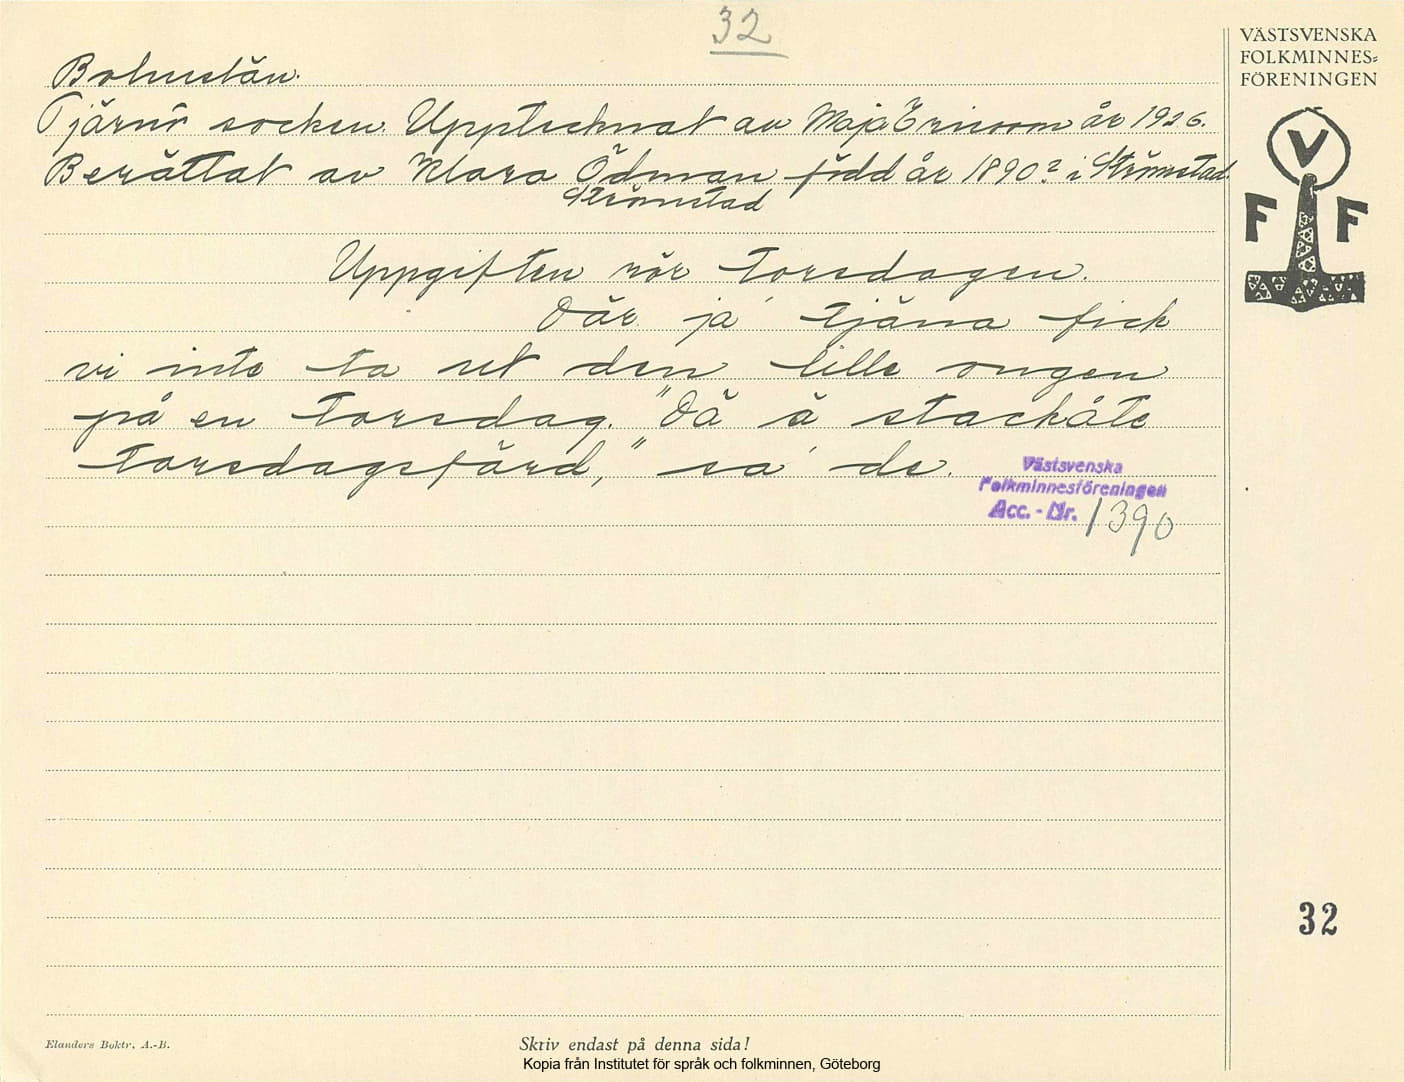 32
VÄSTSVENSKA
FOLKMINNES=
FÖRENINGEN
V
F F
Bohuslän.
Tjärnö socken. Upptecknat av Maja Ericson år 1926.
Berättat av Klara Ödman född år 1890? i Strömstad
Strömstad
Uppgiften rör torsdagen.
Där ja' tjäna fick
vi inte ta ut den lille ongen
på en torsdag. "Dä ä stackåte
torsdagsfärd," sa' de.
Västsvenska
Folkminnesföreningen
Acc. - Nr. 1390
32
Elanders Boktr. A.-B.
Skriv endast på denna sida!
Kopia från Institutet för språk och folkminnen, Göteborg